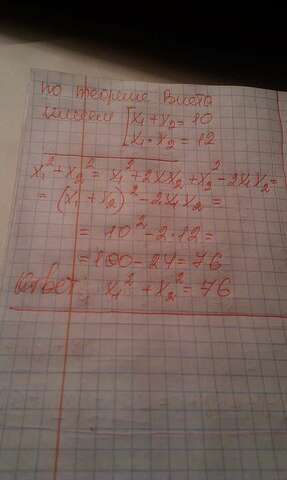 по теореме Виета
имеем [x₁ + x₂ = 10
[x₁ · x₂ = 12
x₁² + x₂² = x₁² + 2x₁x₂ + x₂² - 2x₁x₂ =
= (x₁ + x₂)² - 2x₁x₂ =
= 10² - 2·12 =
= 100 - 24 = 76
Ответ: x₁² + x₂² = 76